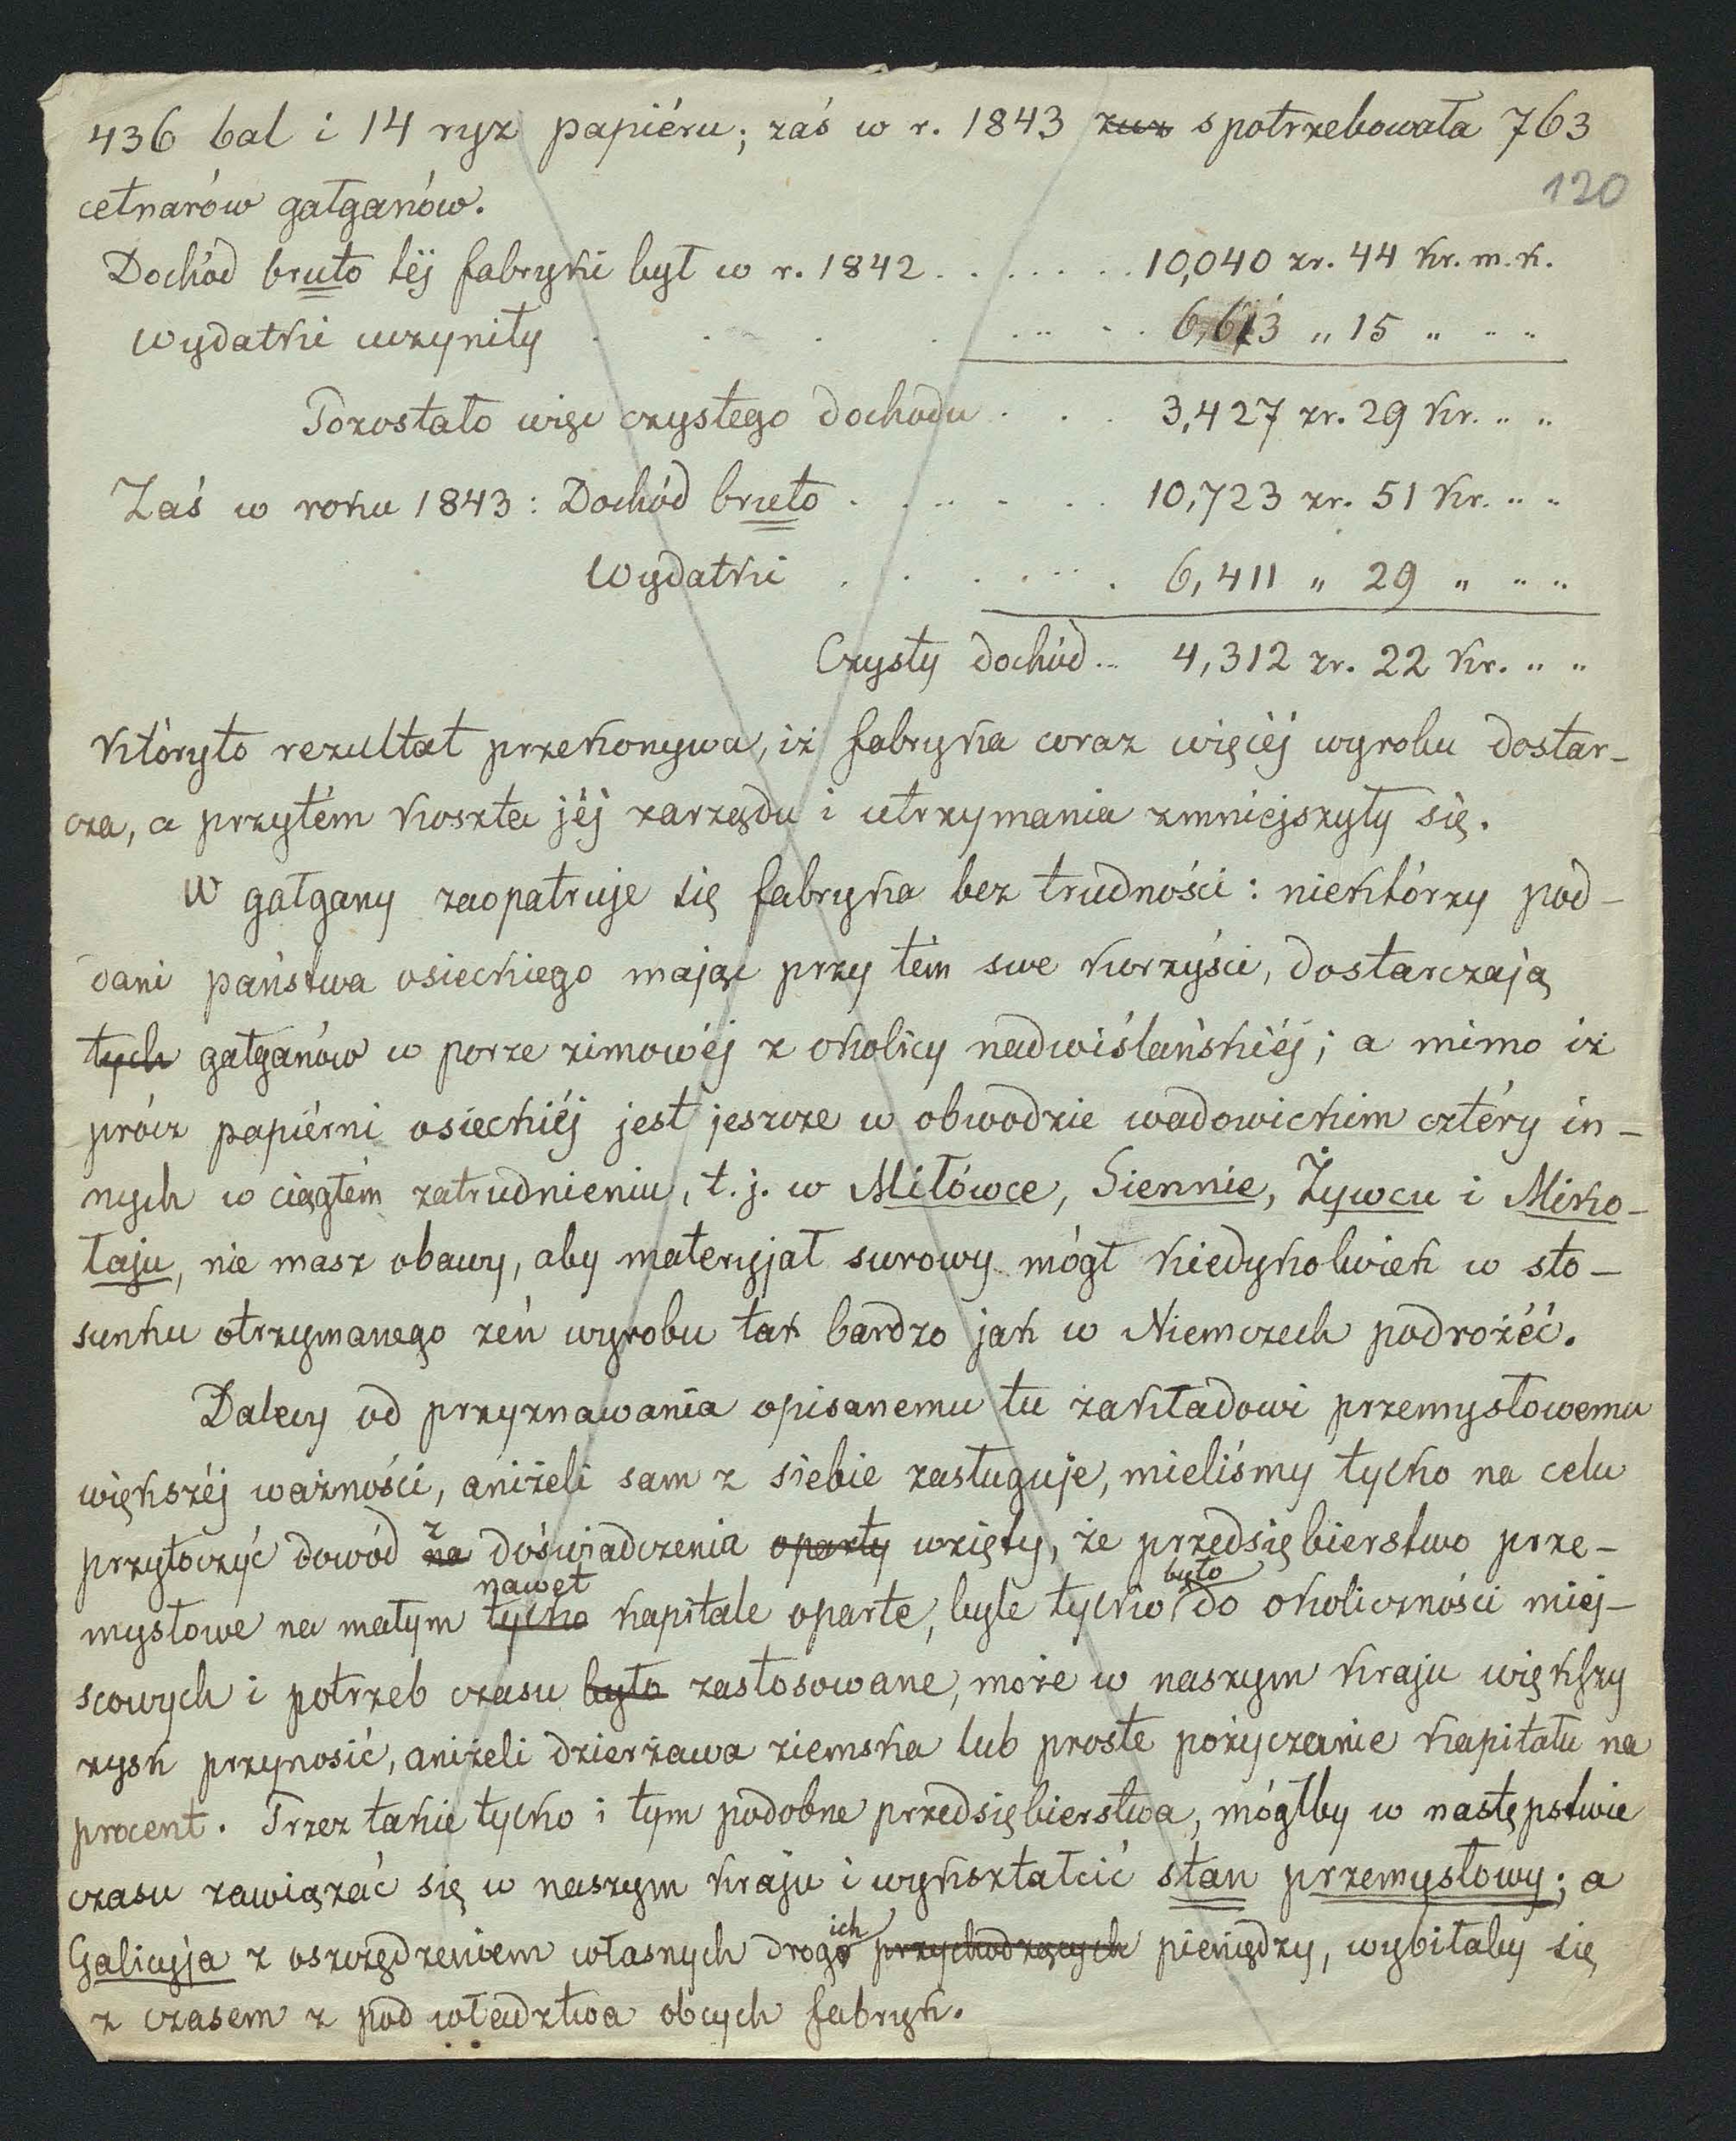 436 bal i 14 ryz papiéru; zaś w r. 1843 zuż spotrzebowała 763
120
cetnarów gałganów.
Dochód bruto téj fabryki był w r. 1842 . . . . . . . 10,040 zr. 44 kr. m. k.
Wydatki uczyniły . . . . . . . . 6,613 „ 15 „ „ „
Pozostało więc czystego dochodu . . . 3,427 zr. 29 kr. „ „
Zaś w roku 1843: Dochód bruto . . . . . . . 10,723 zr. 51 kr. „ „
Wydatki . . . . . . . 6,411 „ 29 „ „ „
Czysty dochód .. 4,312 zr. 22 kr. „ „
któryto rezultat przekonywa, iż fabryka coraz więcéj wyrobu dostar-
cza, a przytém koszta jéj zarządu i utrzymania zmniejszyły się.
W gałgany zaopatruje się fabryka bez trudności: niektórzy pod-
dani państwa osieckiego mając przy tém swe korzyści, dostarczają
tych gałganów w porze zimowéj z okolicy nadwiślańskiéj; a mimo iż
prócz papiérni osieckiéj jest jeszcze w obwodzie wadowickim cztéry in-
nych w ciągłém zatrudnieniu, t. j. w Miłówce, Siennie, Żywcu i Miko-
łaju, nie masz obawy, aby materyjał surowy mógł kiedykolwiek w sto-
sunku otrzymanego zeń wyrobu tak bardzo jak w Niemczech podrożéć.
Dalecy od przyznawania opisanemu tu zakładowi przemysłowemu
większéj ważności, aniżeli sam z siebie zasługuje, mieliśmy tylko na celu
przytoczyć dowód na z doświadczenia oparty wzięty, że przedsiębierstwo prze-
mysłowe na małym tylko nawet kapitale oparte, byle tylko było do okoliczności miej-
scowych i potrzeb czasu było zastosowane, może w naszym kraju większy
zysk przynosić, aniżeli dzierżawa ziemska lub proste pożyczanie kapitału na
procent. Przez takie tylko i tym podobne przedsiębierstwa, mógłby w następstwie
czasu zawiązać się w naszym kraju i wykształcić stan przemysłowy; a
Galicyja z oszczędzeniem własnych drogich przychodzących pieniędzy, wybiłaby się
z czasem z pod władztwa obcych fabryk.